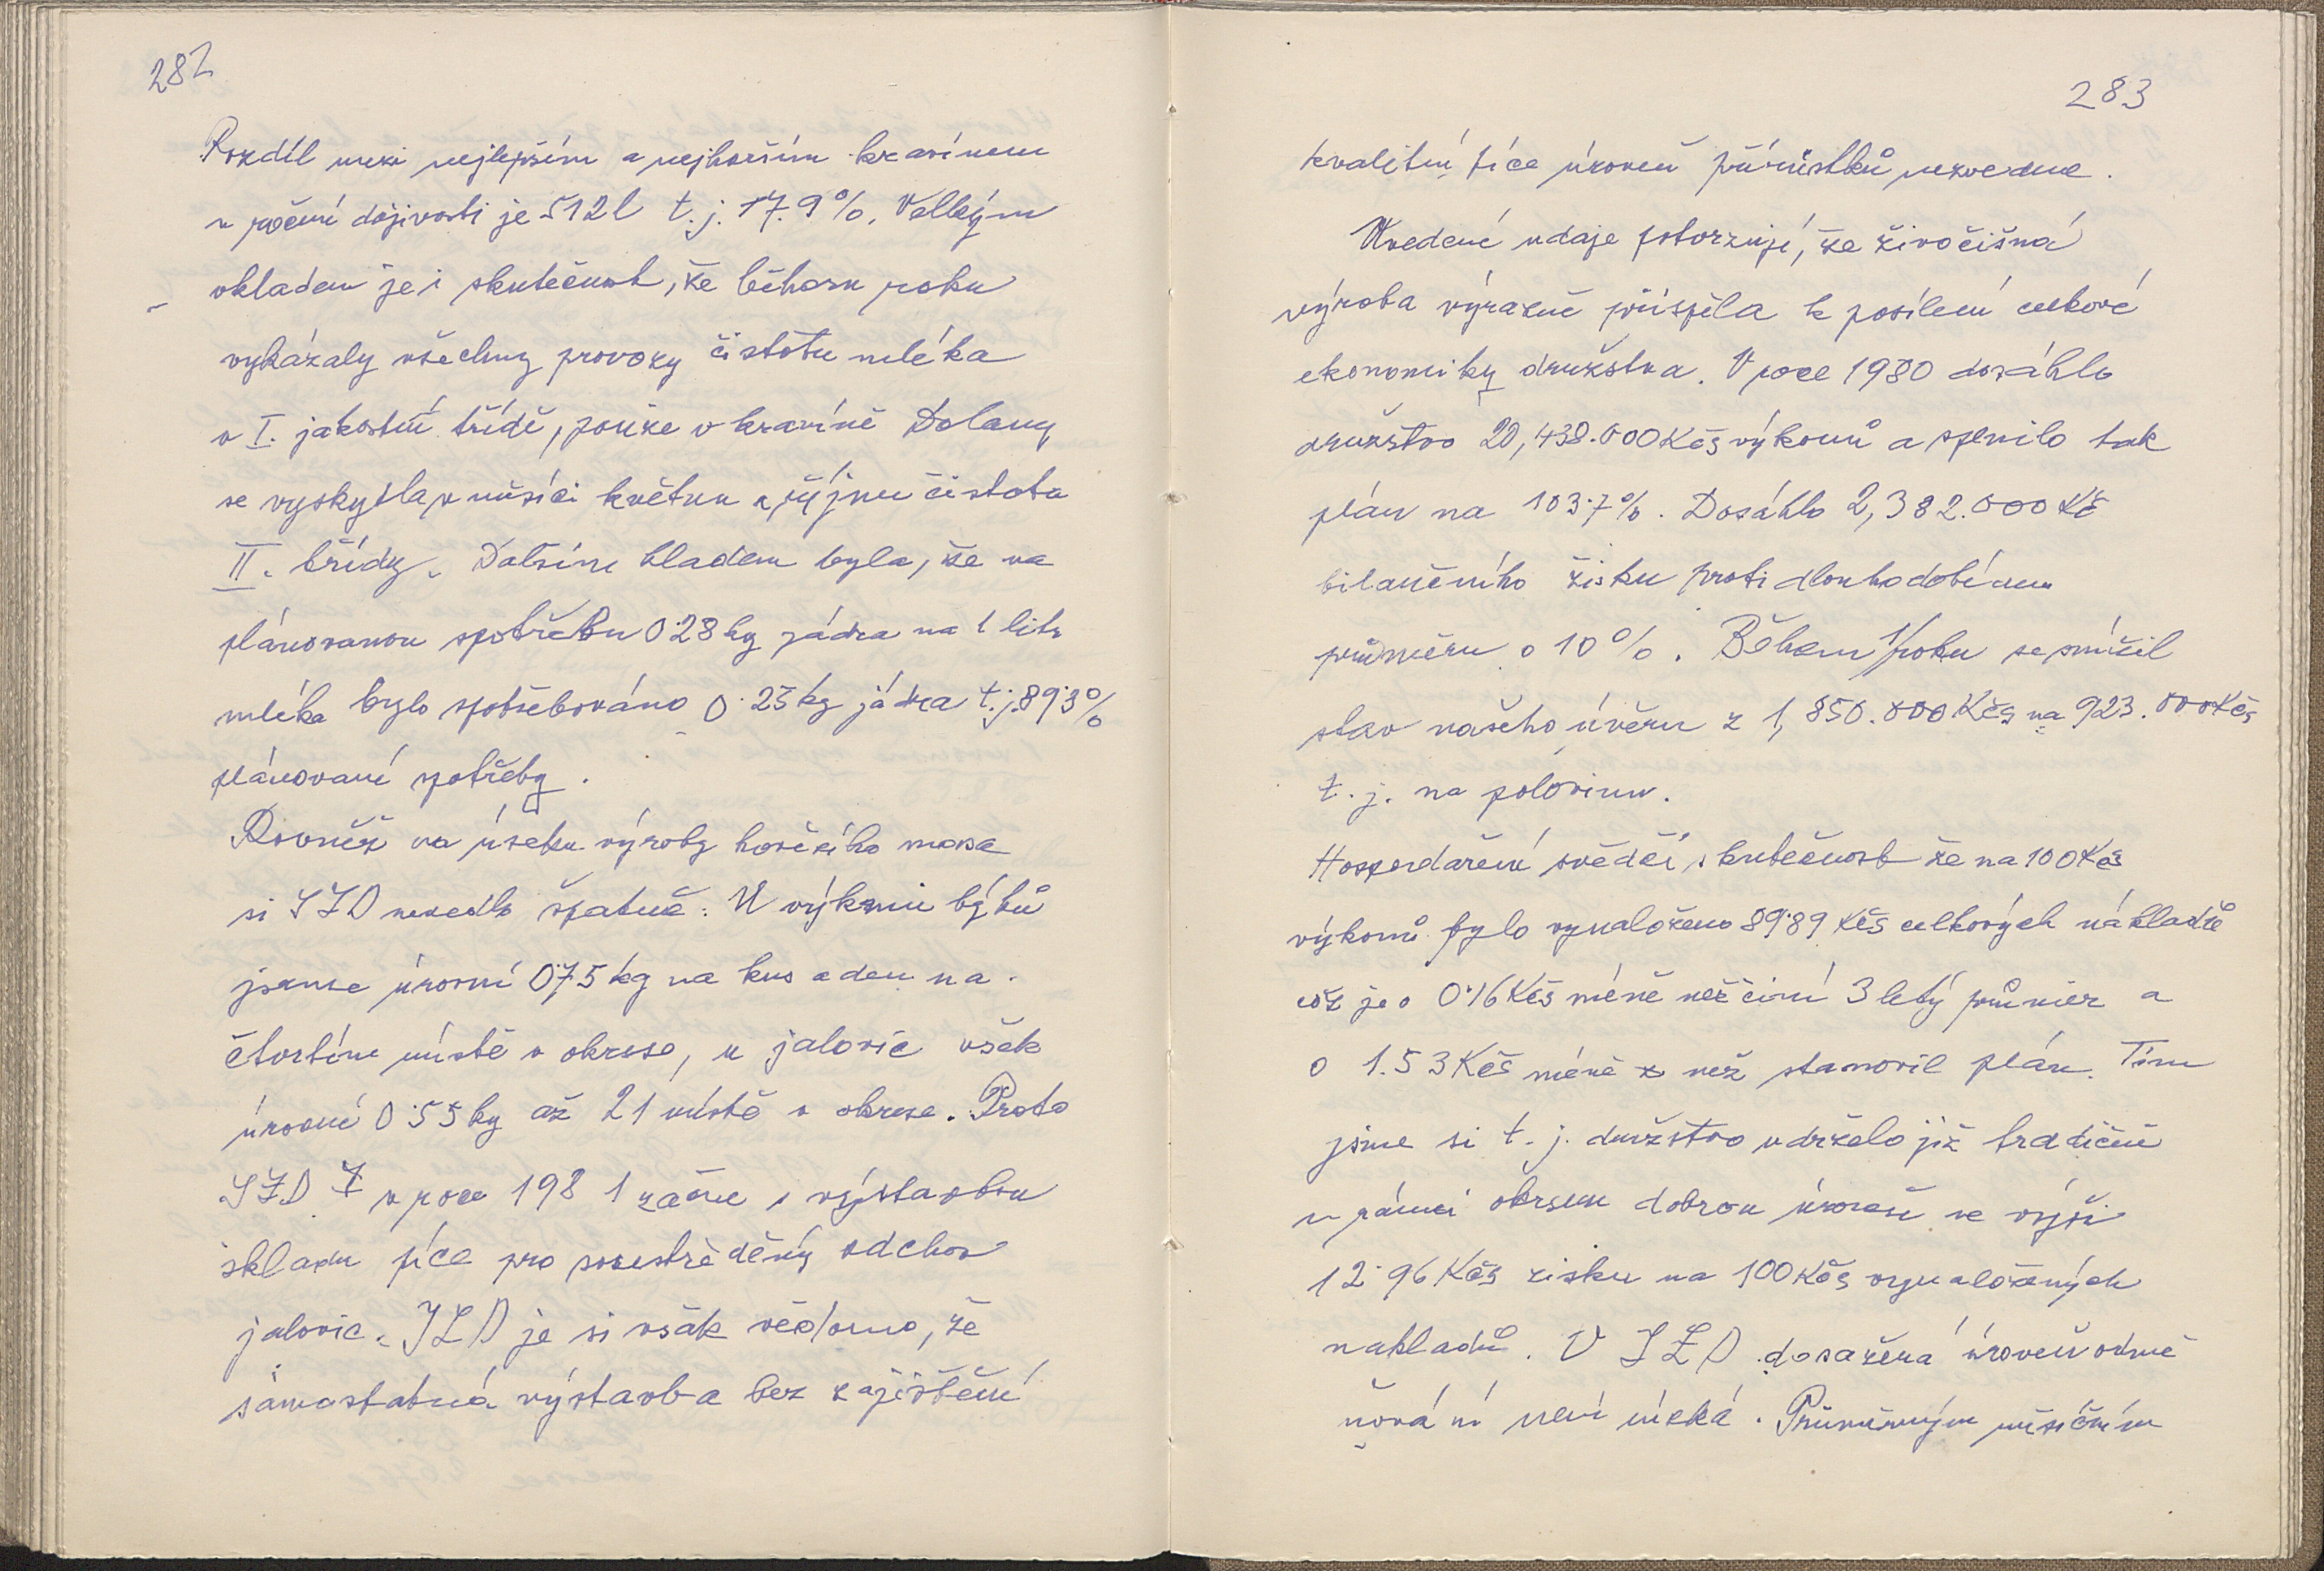 282
Rozdíl mezi nejlepším a nejhorším kravínem
v roční dojivosti je 512 l t.j. 17.9%. Velkým
vkladem je i skutečnost, že během roku
vykázaly všechny provozy čistotu mléka
v I. jakostní třídě, pouze v kravíně Dolany
se vyskytla v měsíci květnu a říjnu čistota
II. třídy. Dalším kladem byla, že na
plánovanou spotřebu 0.28 kg jádra na 1 litr
mléka bylo spotřebováno 0.25 kg jádra t.j. 89.3%
plánované spotřeby.
Rovněž na úseku výroby hovězího masa
si JZD nevedlo špatně. U výkrmu býků
jsme úrovní 0.75 kg na kus a den na
čtvrtém místě v okrese, u jalovic však
úrovní 0.55 kg až 21 místě v okrese. Proto
JZD v roce 1981 začne s výstavbou
skladu píce pro soustředěný odchov
jalovic. JZD je si však vědomo, že
samostatná výstavba bez zajištění
283
kvalitní píce úroveň přírůstků nezvedne.
Uvedené udaje potvrzují, že živočišná
výroba výrazně přispěla k posílení celkové
ekonomiky družstva. V roce 1980 dosáhlo
družstvo 20,438.000 Kčs výkonů a splnilo tak
plán na 103.7%. Dosáhlo 2,382.000 Kč
bilančního zisku proti dlouhodobému
průměru o 10%. Během roku se snížil
stav našeho úvěru z 1,850.000 Kčs na 923.000 Kčs
t.j. na polovinu.
Hospodaření svědčí skutečnost že na 100 Kčs
výkonů bylo vynaloženo 89.89 Kčs celkových nákladů
což je o 0.16 Kčs méně než činí 3 letý průměr a
o 1.53 Kčs méně než stanovil plán. Tím
jsme si t.j. družstvo udrželo již tradičně
v rámci okresu dobrou úroveň ve výši
12.96 Kčs zisku na 100 Kčs vynaložených
nakladů. V JZD dosažená úroveň odmě
ňování není nízká. Průměrným měsíčním